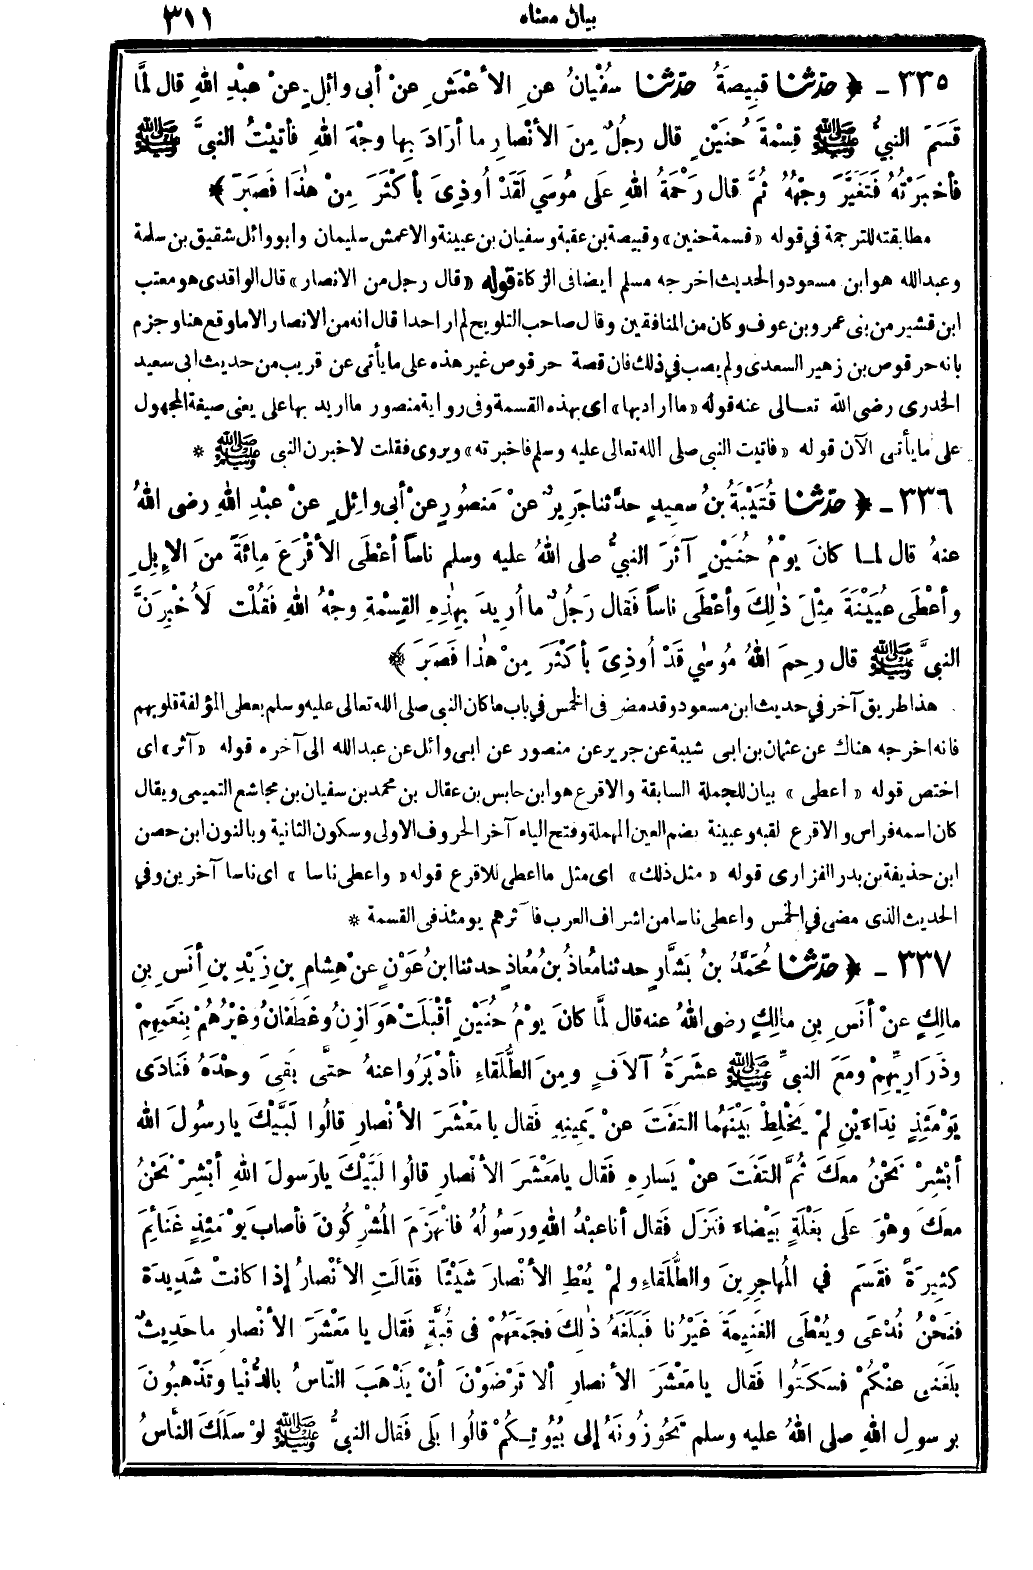 بيان معناه ٣١١
٣٣٥ ـ ﴿ حَدَّثَنَا قَبِيصَةُ حَدَّثَنَا سُفْيَانُ عنِ الأَعْمَشِ عنْ أبي وائِلٍ عنْ عبْدِ اللهِ قال لَمَّا
قَسَمَ النبيُّ ﷺ قِسْمَةَ حُنَيْنٍ قال رجُلٌ مِنَ الأنْصارِ ما أرَادَ بِها وجْهَ اللهِ فأتَيْتُ النبيَّ ﷺ
فأخبَرْتُهُ فَتَغَيَّرَ وجْهُهُ ثُمَّ قال رَحْمَةُ اللهِ علَى مُوسَي لَقَدْ أُوذِيَ بأكْثَرَ مِنْ هٰذَا فَصَبَرَ ﴾
مطابقته للترجمة في قوله «قسمة حنين» وقبيصة بن عقبة وسفيان بن عيينة والاعمش سليمان وابو وائل شقيق بن سلمة
وعبد الله هو ابن مسعود والحديث اخرجه مسلم ايضا في الزكاة قوله «قال رجل من الانصار» قال الواقدى هو معتب
ابن قشير من بنى عمرو بن عوف وكان من المنافقين وقال صاحب التلويح لم ار احدا قال انه من الانصار الا ما وقع هنا وجزم
بانه حرقوص بن زهير السعدى ولم يصب في ذلك فان قصة حرقوص غير هذه على ما يأتى عن قريب من حديث ابى سعيد
الخدرى رضى الله تعالى عنه قوله «ما اراد بها» اى بهذه القسمة وفى رواية منصور ما اريد بها على يعنى صيغة المجهول
على ما يأتى الآن قوله «فاتيت النبي صلى الله تعالى عليه وسلم فاخبرته» ويروى فقلت لاخبرن النبى ﷺ *
٣٣٦ ـ ﴿ حَدَّثَنَا قُتَيْبَةُ بنُ سعِيدٍ حدَّثنا جَرِيرٌ عنْ مَنصُورٍ عنْ أبى وائِلٍ عنْ عبْدِ اللهِ رضى اللهُ
عنهُ قال لمـا كانَ يوْمُ حُنَيْنٍ آثَرَ النبيُّ صلى اللهُ عليه وسلم ناساً أعْطَى الأقْرَعَ مِائَةً منَ الإبِلِ
وأعْطَى عُيَيْنَةَ مِثْلَ ذٰلِكَ وأعْطَى ناساً فَقال رَجُلٌ ما أُرِيدَ بِهٰذِهِ القِسْمةِ وجْهُ اللهِ فَقُلْت لَأُخْبِرَنَّ
النبيَّ ﷺ قال رحِمَ اللهُ مُوسٰي قَدْ أُوذِيَ بأكْثَرَ مِنْ هٰذا فَصَبَرَ ﴾
هذا طريق آخر في حديث ابن مسعود وقد مضى فى الخمس في باب ما كان النبى صلى الله تعالى عليه وسلم يعطى المؤلفة قلوبهم
فانه اخرجه هناك عن عثمان بن ابى شيبة عن جرير عن منصور عن ابى وائل عن عبدالله الى آخره قوله «آثر» اى
اختص قوله «أعطى» بيان للجملة السابقة والاقرع هو ابن حابس بن عقال بن محمد بن سفيان بن مجاشع التميمى ويقال
كان اسمه فراس والاقرع لقبه وعيينة بضم العين المهملة وفتح الياء آخر الحروف الاولى وسكون الثانية وبالنون ابن حصن
ابن حذيفة بن بدر الفزارى قوله «مثل ذلك» اى مثل ما اعطى للاقرع قوله «واعطى ناسا» اى ناسا آخرين وفي
الحديث الذى مضى في الخمس واعطى ناسا من اشراف العرب فآثرهم يومئذ فى القسمة *
٣٣٧ ـ ﴿ حَدَّثَنَا مُحَمَّدُ بنُ بَشَّارٍ حدثنا مُعاذُ بنُ مُعاذٍ حدثنا ابنُ عَوْنٍ عنْ هِشامِ بنِ زَيْدِ بنِ أنَسِ بنِ
مالِكٍ عنْ أنَسِ بنِ مالِكٍ رضى اللهُ عنه قال لَمَّا كانَ يوْمُ حُنَيْنٍ أقْبَلَتْ هَوَازِنُ وغَطَفانُ وغيْرُهُمْ بِنَعَمِهِمْ
وذَرَارِيِّهِمْ ومَعَ النبيِّ ﷺ عشَرَةُ آلافٍ ومِنَ الطُّلَقاءِ فأدْبَرُوا عنهُ حتَّى بَقِيَ وحْدَهُ فَنادَى
يوْمَئِذٍ نِدَاءَيْنِ لمْ يَخْلِطْ بَيْنَهُما الْتَفَتَ عنْ يَمِينِهِ فَقال يا مَعْشَرَ الأنْصارِ قالُوا لَبَّيْكَ يا رسُولَ الله
أبْشِرْ نَحْنُ معكَ ثُمَّ الْتَفَتَ عنْ يَسارِهِ فَقال يا مَعْشَرَ الأنْصارِ قالُوا لَبَّيْكَ يا رَسولَ اللهِ أبْشِرْ نَحْنُ
معكَ وهْوَ علَى بَغْلَةٍ بَيْضاءَ فنزَلَ فَقال أنا عبْدُ اللهِ ورَسُولُهُ فانْهَزَمَ المُشْرِكُونَ فأصابَ يوْمَئِذٍ غَنائِمَ
كثِيرَةً فَقَسَمَ في المُهاجِرِينَ والطُّلَقاءِ ولمْ يُعْطِ الأنْصارَ شَيْئًا فَقَالَتِ الأنْصارُ إذا كانَتْ شَدِيدَة
فنَحْنُ نُدْعَى ويُعْطَى الغَنِيمَةَ غَيْرُنا فَبَلَغَهُ ذٰلِكَ فجَمَعَهُمْ في قُبَّةٍ فَقال يا مَعْشَرَ الأنْصارِ ما حَدِيثٌ
بلَغَنى عنْكُمْ فسَكَتُوا فَقال يا مَعْشَرَ الأنصارِ ألا تَرْضَوْنَ أنْ يَذْهَبَ النَّاسُ بالدُّنْيا وتَذْهبُونَ
برسولِ اللهِ صلى اللهُ عليه وسلم تَحُوزُونَهُ إلى بُيُوتِكُمْ قالُوا بَلَى فَقال النبيُّ ﷺ لوْ سَلَكَ النَّاسُ